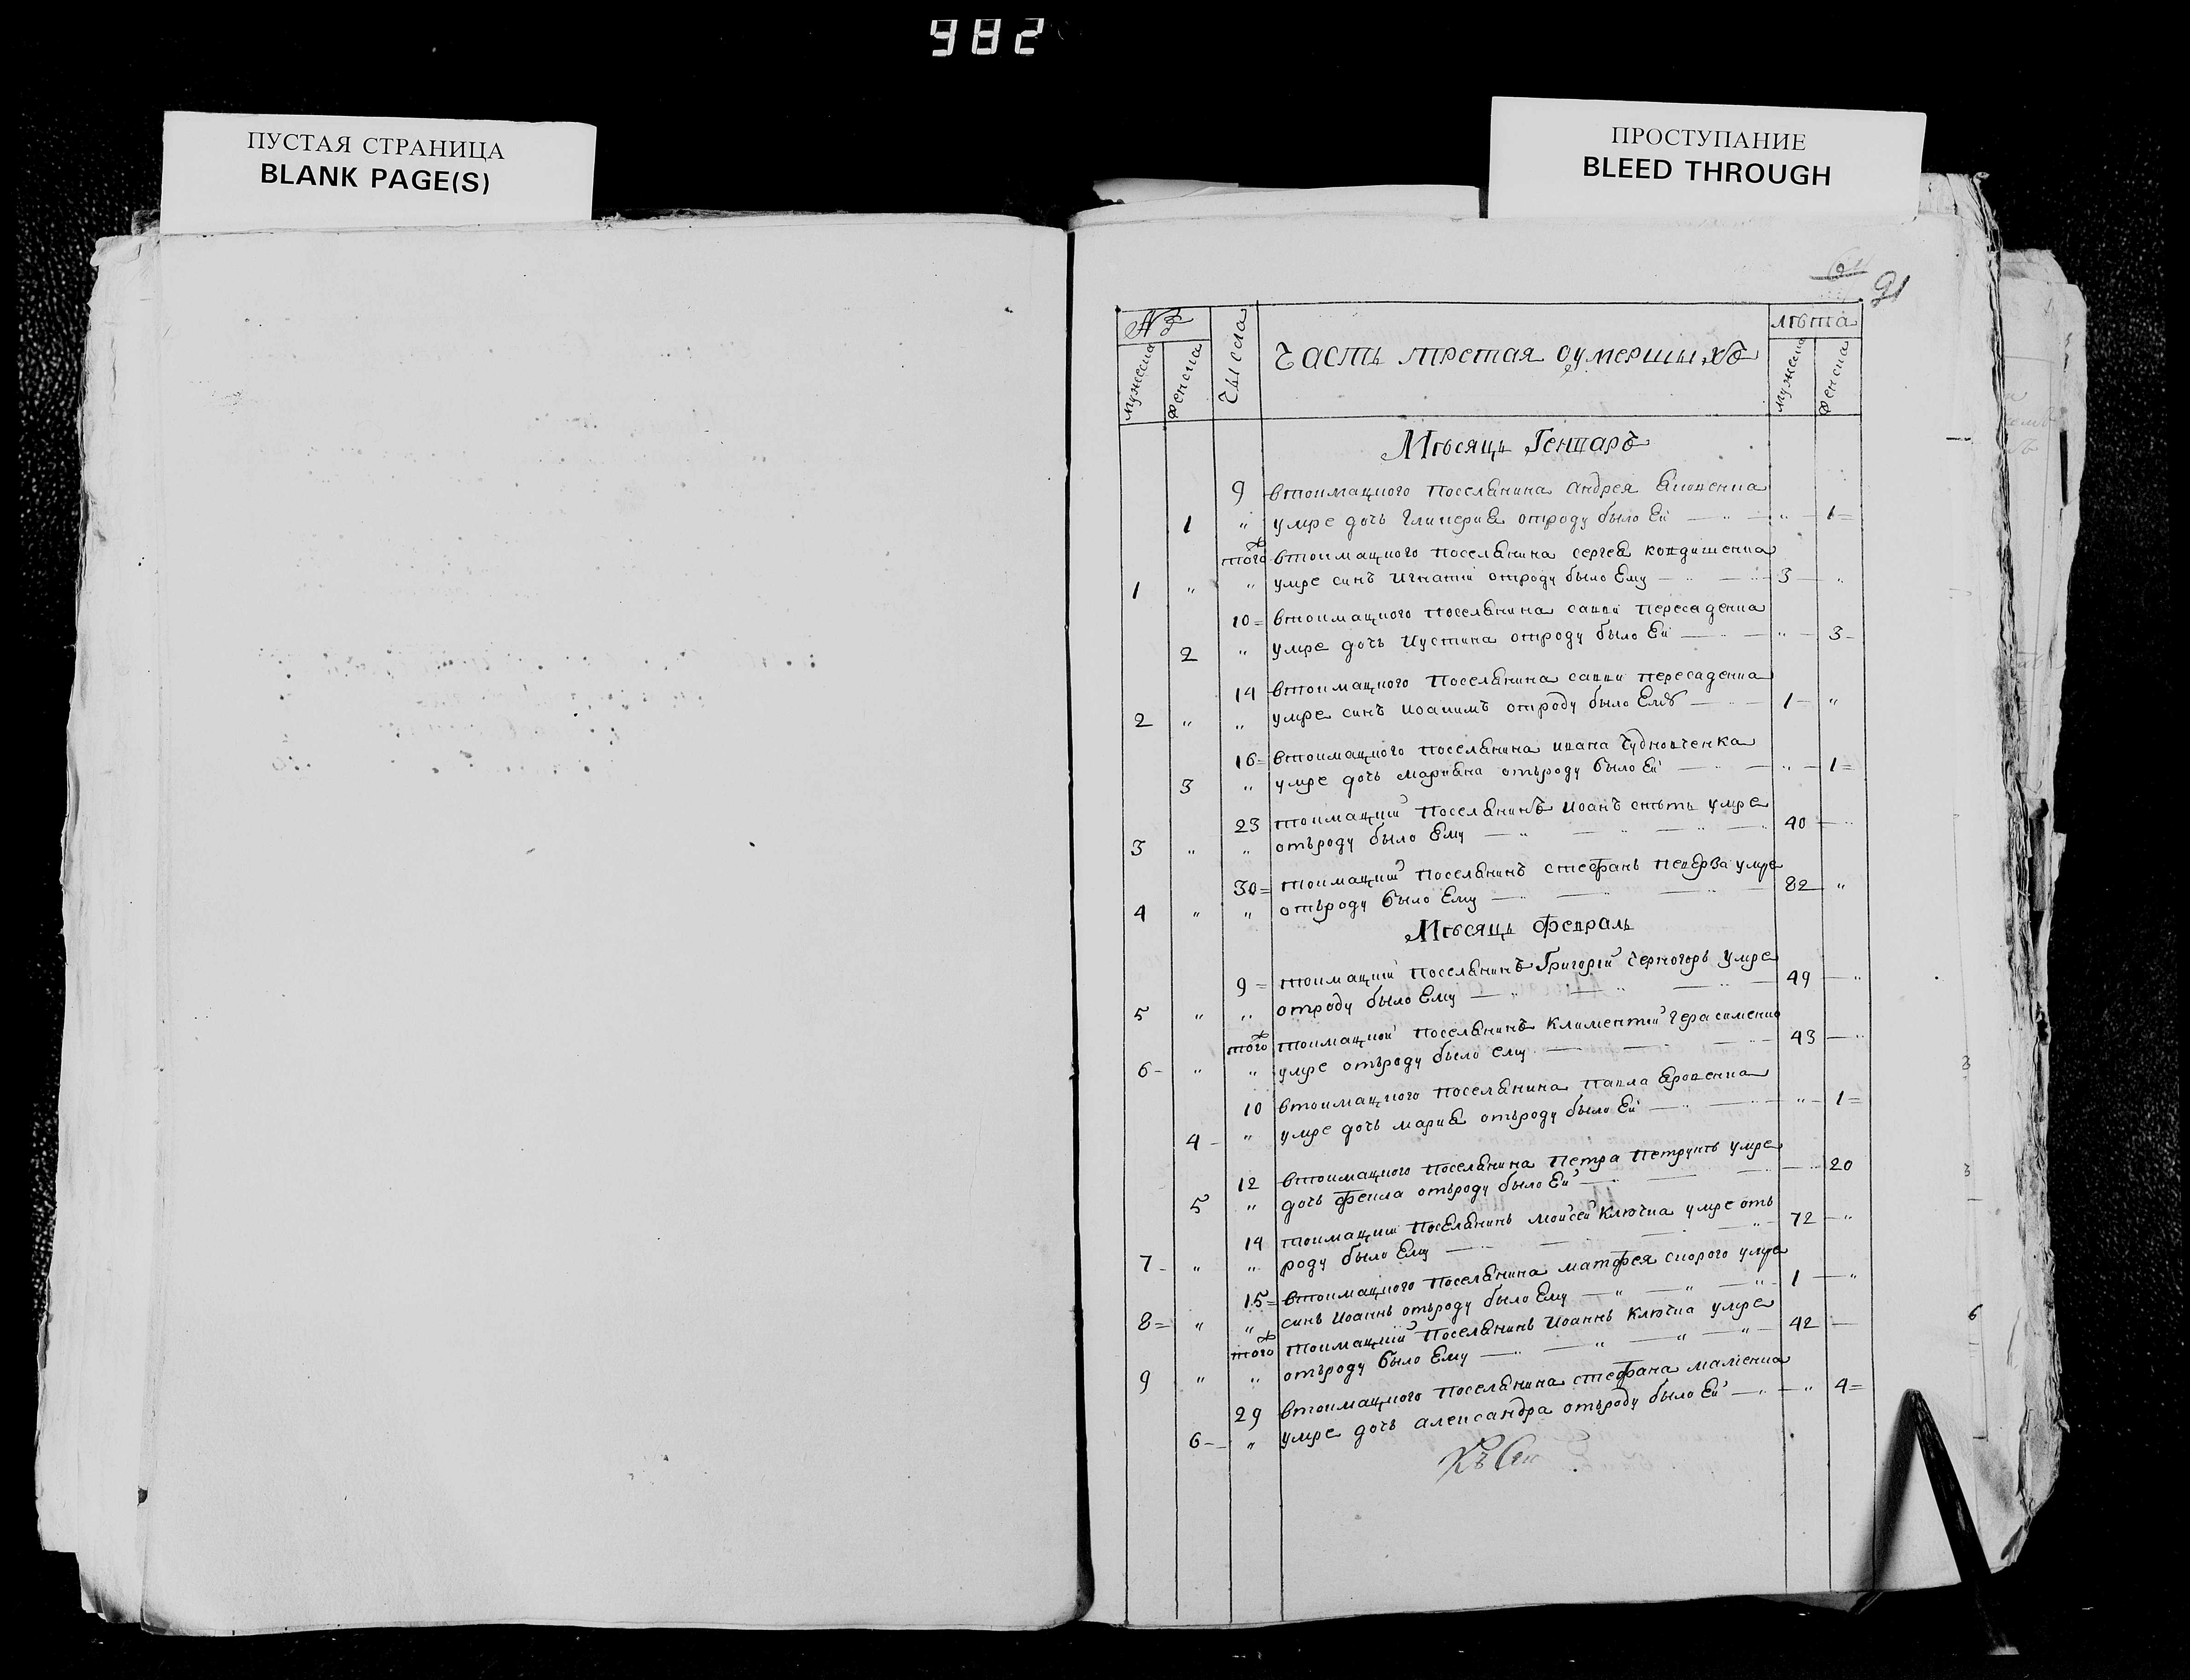 982
ПУСТАЯ СТРАНИЦА
BLANK PAGE(S)
ПРОСТУПАНИЕ
BLEED THROUGH
91
№
мужеска
женска
Числа
Часть третая оумершихъ
лѣта
мужеска
женска
Мѣсяць Генваръ
9 втоимацкого поселянина Андрея
1 " умре дочь Гликерия отроду было Ей " 1
того втоимацкого поселянина сергея
1 " " умре синъ Игнатий отроду было Ему 3 "
10 втоимацкого поселянина саввы пересаденка
2 " умре дочь Иустина отроду было Ей " 3
14 втоимацкого поселянина саввы пересаденка
2 " " умре синъ Иоакимъ отроду было Ему 1 "
16 втоимацкого поселянина ивана Чудновченка
3 " умре дочь мариана отъроду было Ей " 1
23 тоимацкий поселянинъ Иоанъ умре
3 " " отъроду было Ему 40 "
30 тоимацкий поселянинъ стефанъ умре
4 " " отъроду было Ему 82 "
Мѣсяць Февраль
9 тоимацкий поселянинъ Григорий Черногоръ умре
5 " " отроду было Ему 49 "
того тоимацкой поселянинъ Климентий Герасименко
6 " " умре отъроду было ему 43 "
10 втоимацкого поселянина павла
4 " умре дочь мария отъроду было Ей " 1
12 втоимацкого поселянина Петра умре
5 " дочь Фекла отъроду было Ей 20
14 тоимацкий поселянинъ моисей Ключка умре отъ
7 " " роду было Ему 72 "
15 втоимацкого поселянина матфея скорого умре
8 " " синъ Иоаннъ отъроду было Ему 1 "
того тоимацкий поселянинъ Иоаннъ Ключка умре
9 " " отъроду было Ему 42
29 втоимацкого поселянина стефана
6 " умре дочь александра отъроду было Ей " 4